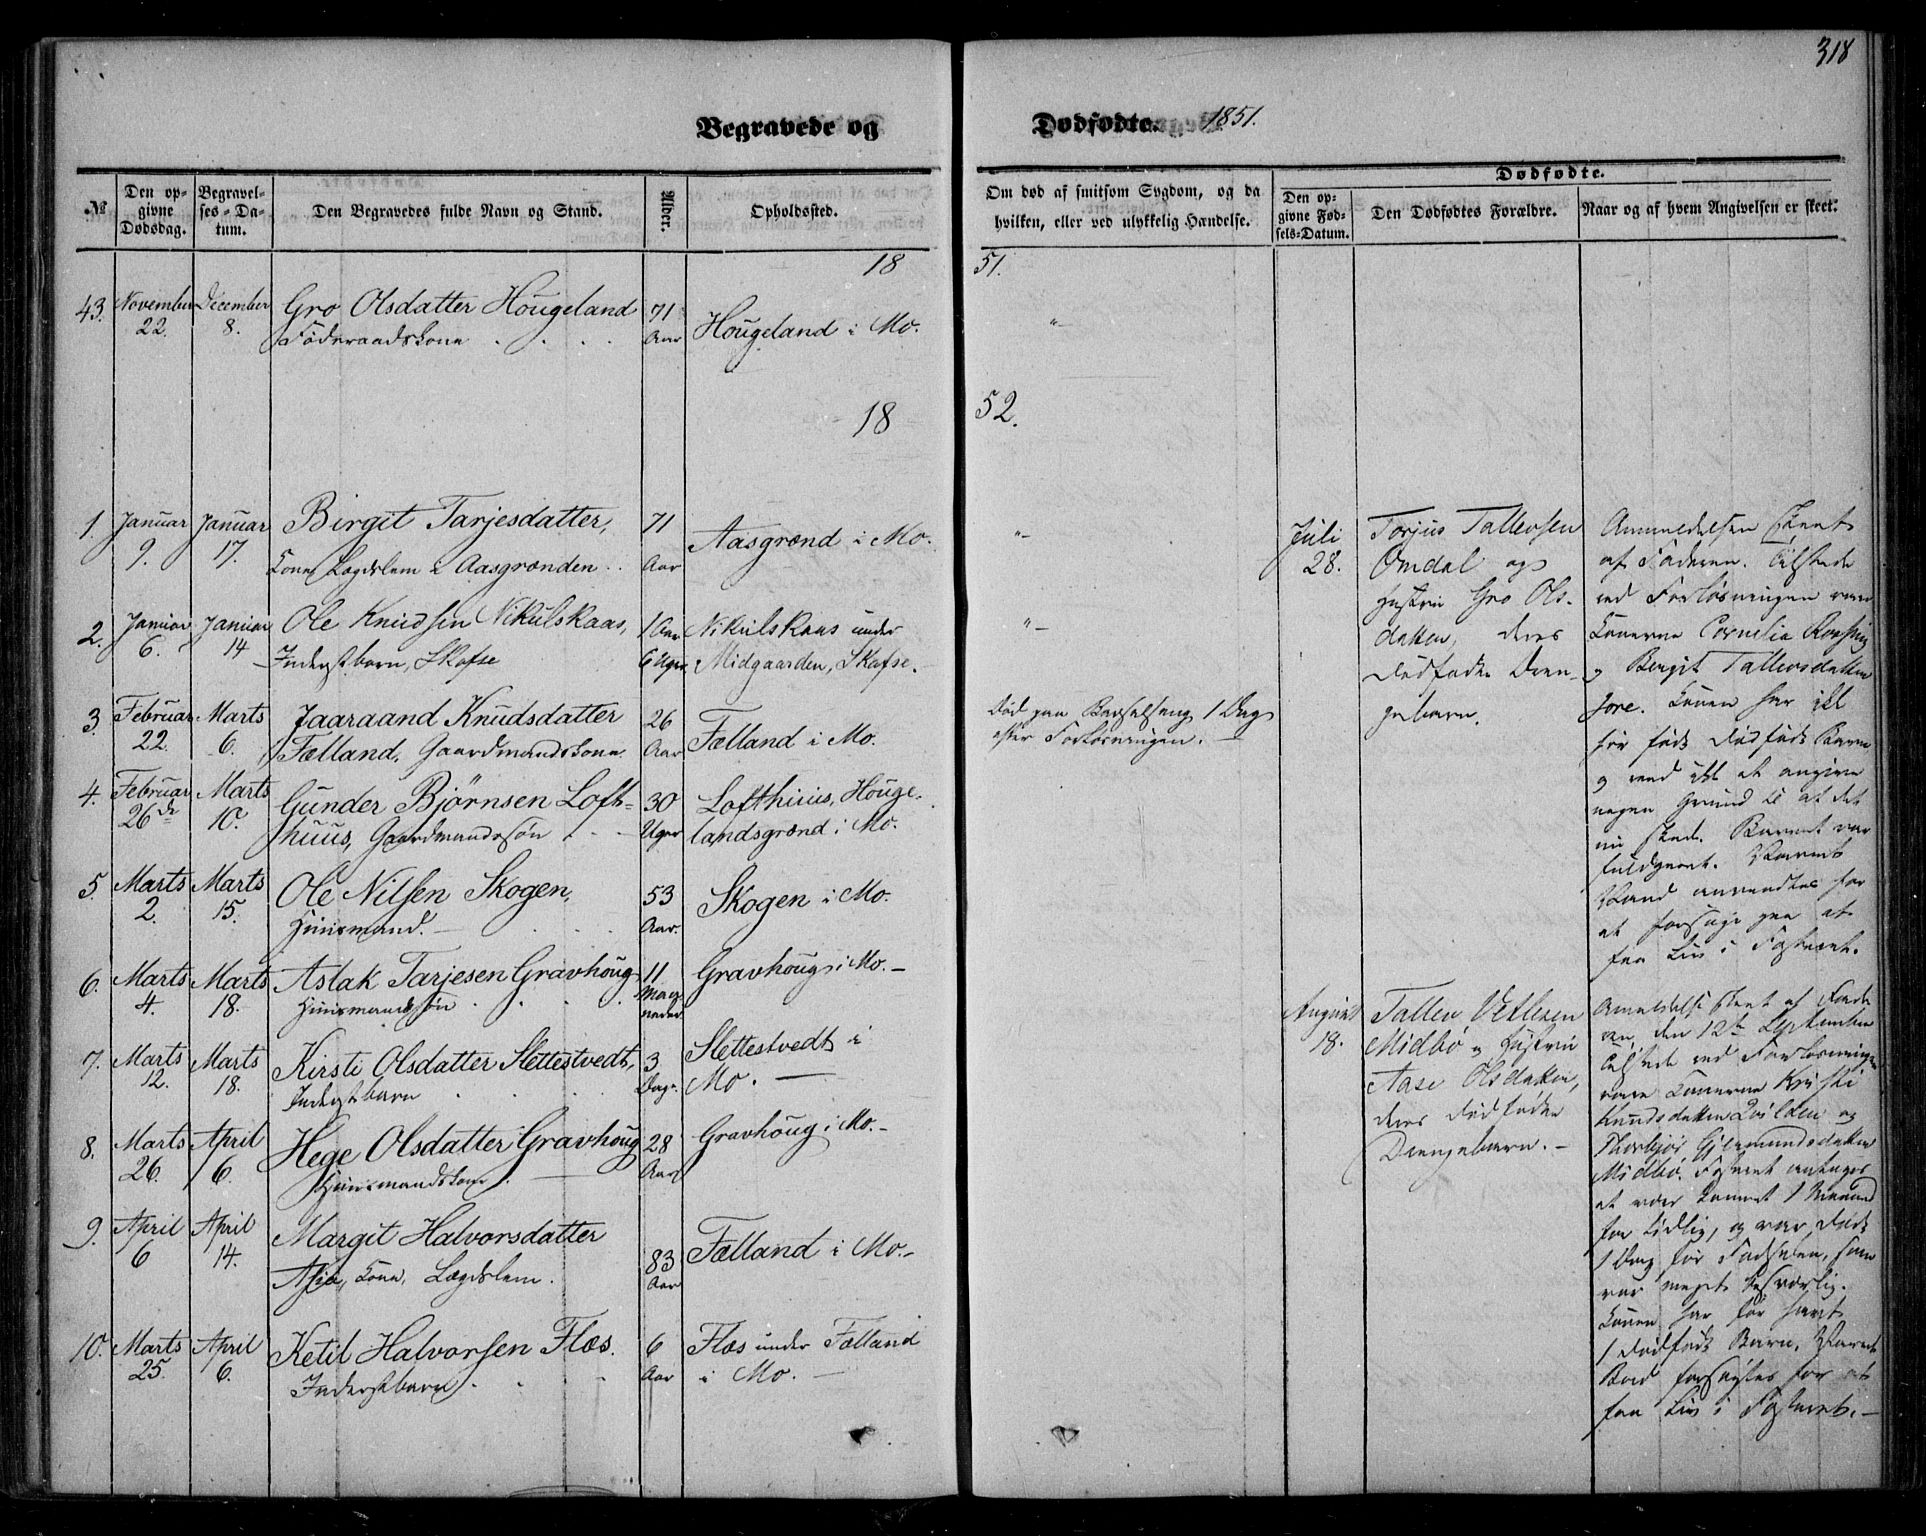 318
Begravede og Dødfødte. 1851.
Dødfødte.
№
Den op-
givne
Dødsdag.
Begravel-
ses-Da-
tum.
Den Begravedes fulde Navn og Stand.
Alder.
Opholdssted.
Om død af smitsom Sygdom, og da
hvilken, eller ved ulykkelig Hændelse.
Den op-
givne Fød-
sels-Datum.
Den Dødfødtes Forældre.
Naar og af hvem Angivelsen er skeet.
18 51.
43. November December Gro Olsdatter Hougeland 71
22. 8. Føderaadskone Aar Hougeland i Mo. "-
18 52.
1. Januar Januar Birgit Tarjesdatter, 71 Aasgrænd i Mo. "-
9. 17. Kone Lægdslem i Aasgrænden Aar
2. Januar Januar Ole Knudsen Nikulskaas, 1 Aar Nikulskaas under "-
6. 14 Inderstbarn, Skafse 6 Uger Midgaarden, Skafse.
3. Februar Marts Jaaraand Knudsdatter 26 Fælland i Mo. Død paa Barselseng 1 Dag
22. 6. Fælland, Gaardmandskone Aar efter Forløsningen.
4. Februar Marts Gunder Bjørnsen Loft- 30 Lofthuus, Houge-
26de 10. huus, Gaardmandssøn Uger landsgrænd i Mo.
5. Marts Marts Ole Nilsen Skogen, 53 Skogen i Mo.
2. 15. Huusmand. Aar.
6. Marts Marts Aslak Tarjesen Gravhoug 11 Gravhoug i Mo.
4. 18. Huusmandssøn Maa-
neder
7. Marts Marts Kirsti Olsdatter Slettestvedt, 3 Slettestvedt i
12. 18. Inderstbarn Dage Mo.
8. Marts April Hege Olsdatter Gravhoug 28 Gravhoug i Mo.
26. 6. Huusmandskone Aar
9. April April Margit Halvorsdatter 83 Fælland i Mo.
6 14. Kone, Lægdslem. Aar
10. Marts April Ketil Halvorsen Flæs. 6 Flæs under Fælland
25. 6. Inderstbarn Aar i Mo.
Juli
28.
Torjus Tallevsen
Omdal og
Hustru Gro Ols-
datter, deres
dødfødte Dren-
gebarn.
Anmeldelsen skeet
af Faderen. Tilstede
ved Forløsningen vare
Konerne Cornelia Roysing
og Bergit Tallevsdatter
Kone. Konen har ikke
før født dødfødt Barn
og veed ikke at angive
nogen Grund til at det
nu skede. Barnet var
fuldbaaret. Varmt
Vand anvendtes for
at forsøge paa at
faa Liv i Fosteret.
August
18.
Tallev Vetlesen
Midbø og Hustru
Aase Olsdatter,
deres dødfødte
Drengebarn.
Anmeldelse skeet af Fade-
ren, den 12te September
Tilstede ved Forløsningen
vare Konerne Kirsti
Knudsdatter og
Thorbjør Gjermundsdatter
Midbø. Fosteret antages
at være kommet 1 Maaned
for tidlig, og var død
1 Dag før Fødselen, som
var meget besværlig.
Konen har før havt
1 dødfødt Barn. Varmt
Bad forsøgtes for at
faa Liv i Fosteret.